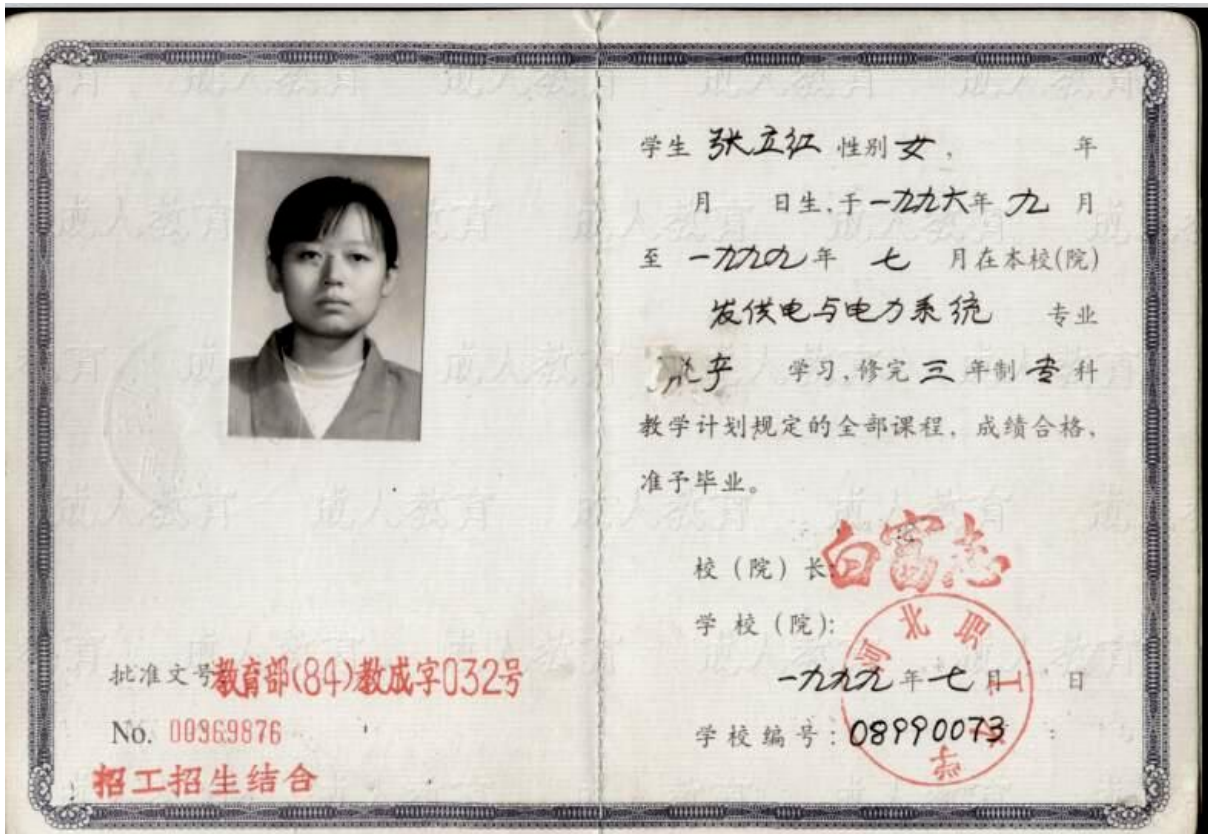 批准文号教育部(84)教成字032号
No. 00969876
招工招生结合
学生 张立红 性别 女, 年
月 日生,于一九九六年 九 月
至 一九九九年 七 月在本校(院)
发供电与电力系统 专业
产 学习,修完 三 年制 专 科
教学计划规定的全部课程,成绩合格,
准予毕业。
校(院)长:白富志
学校(院):
河北职工大学
一九九九年七月 日
学校编号:08990073
成人教育